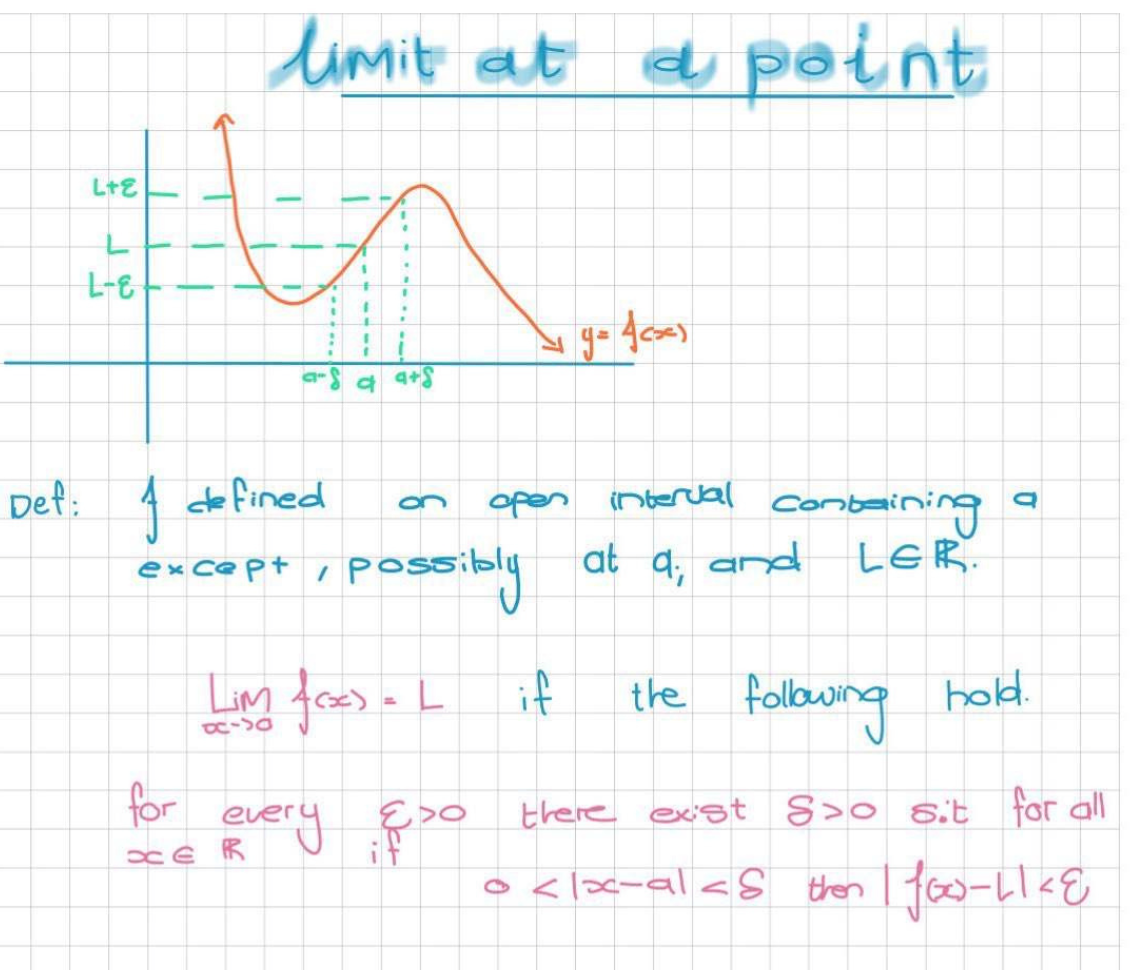 limit at a point
L+ε
L
L-ε
y= f(x)
a-δ a a+δ
Def: f defined on open interval containing a
except, possibly at a, and L∈ℝ.
Lim f(x) = L if the following hold.
x->a
for every ε>0 there exist δ>0 s.t for all
x∈ ℝ if
0 <|x-a| <δ then | f(x)-L| <ε